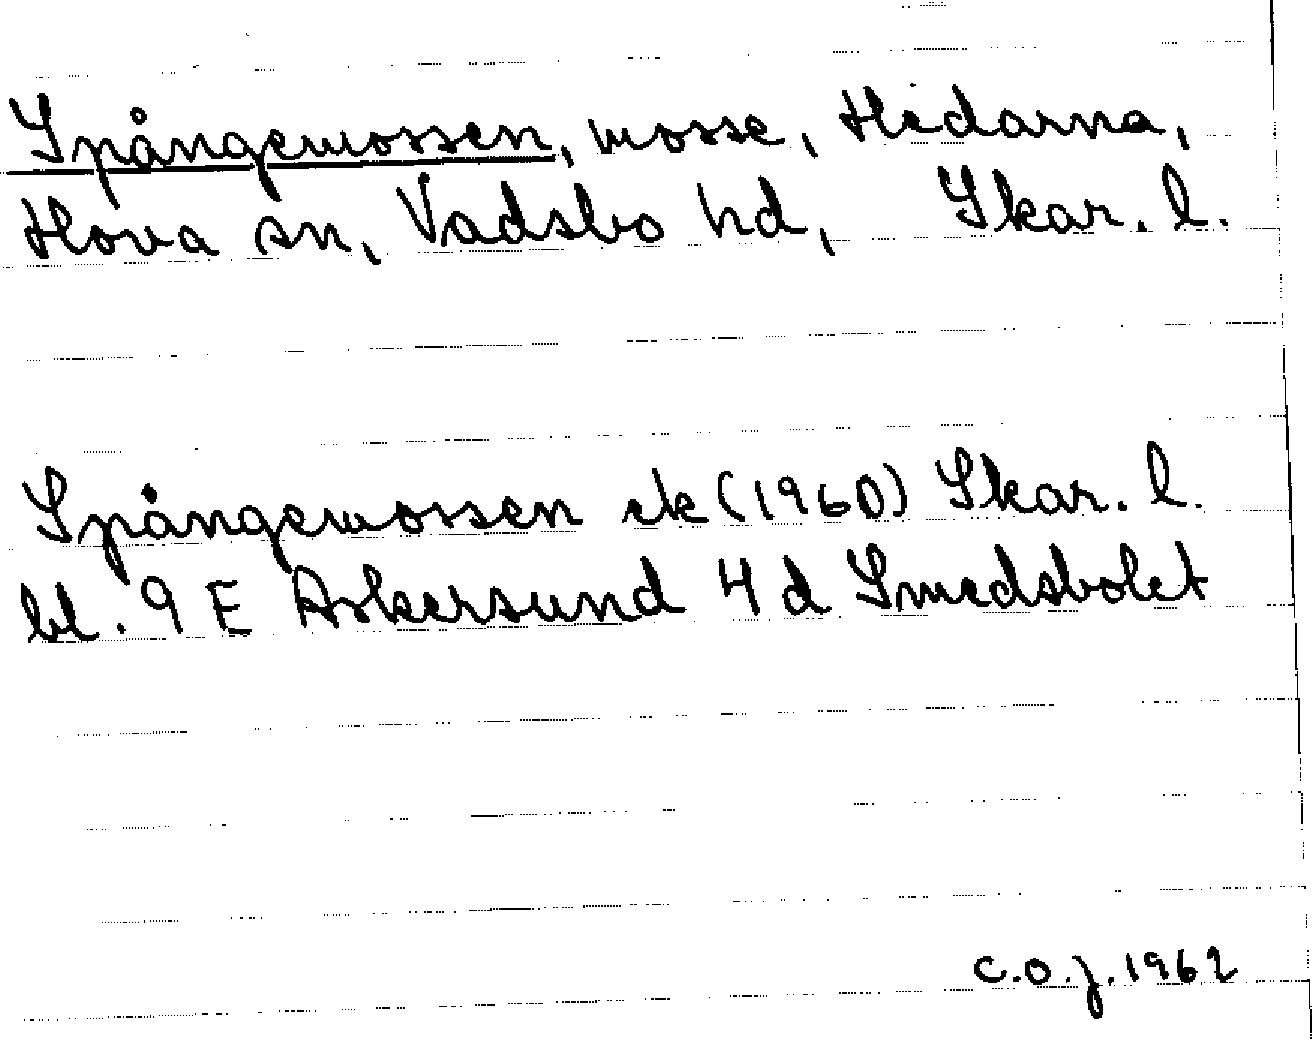 Spångemossen, mosse, Hedarna,
Hova sn, Vadsbo hd, Skar. l.
Spångemossen ek (1960) Skar. l.
bl. 9 E Askersund 4 d Smedsbolet
C.O.J. 1962